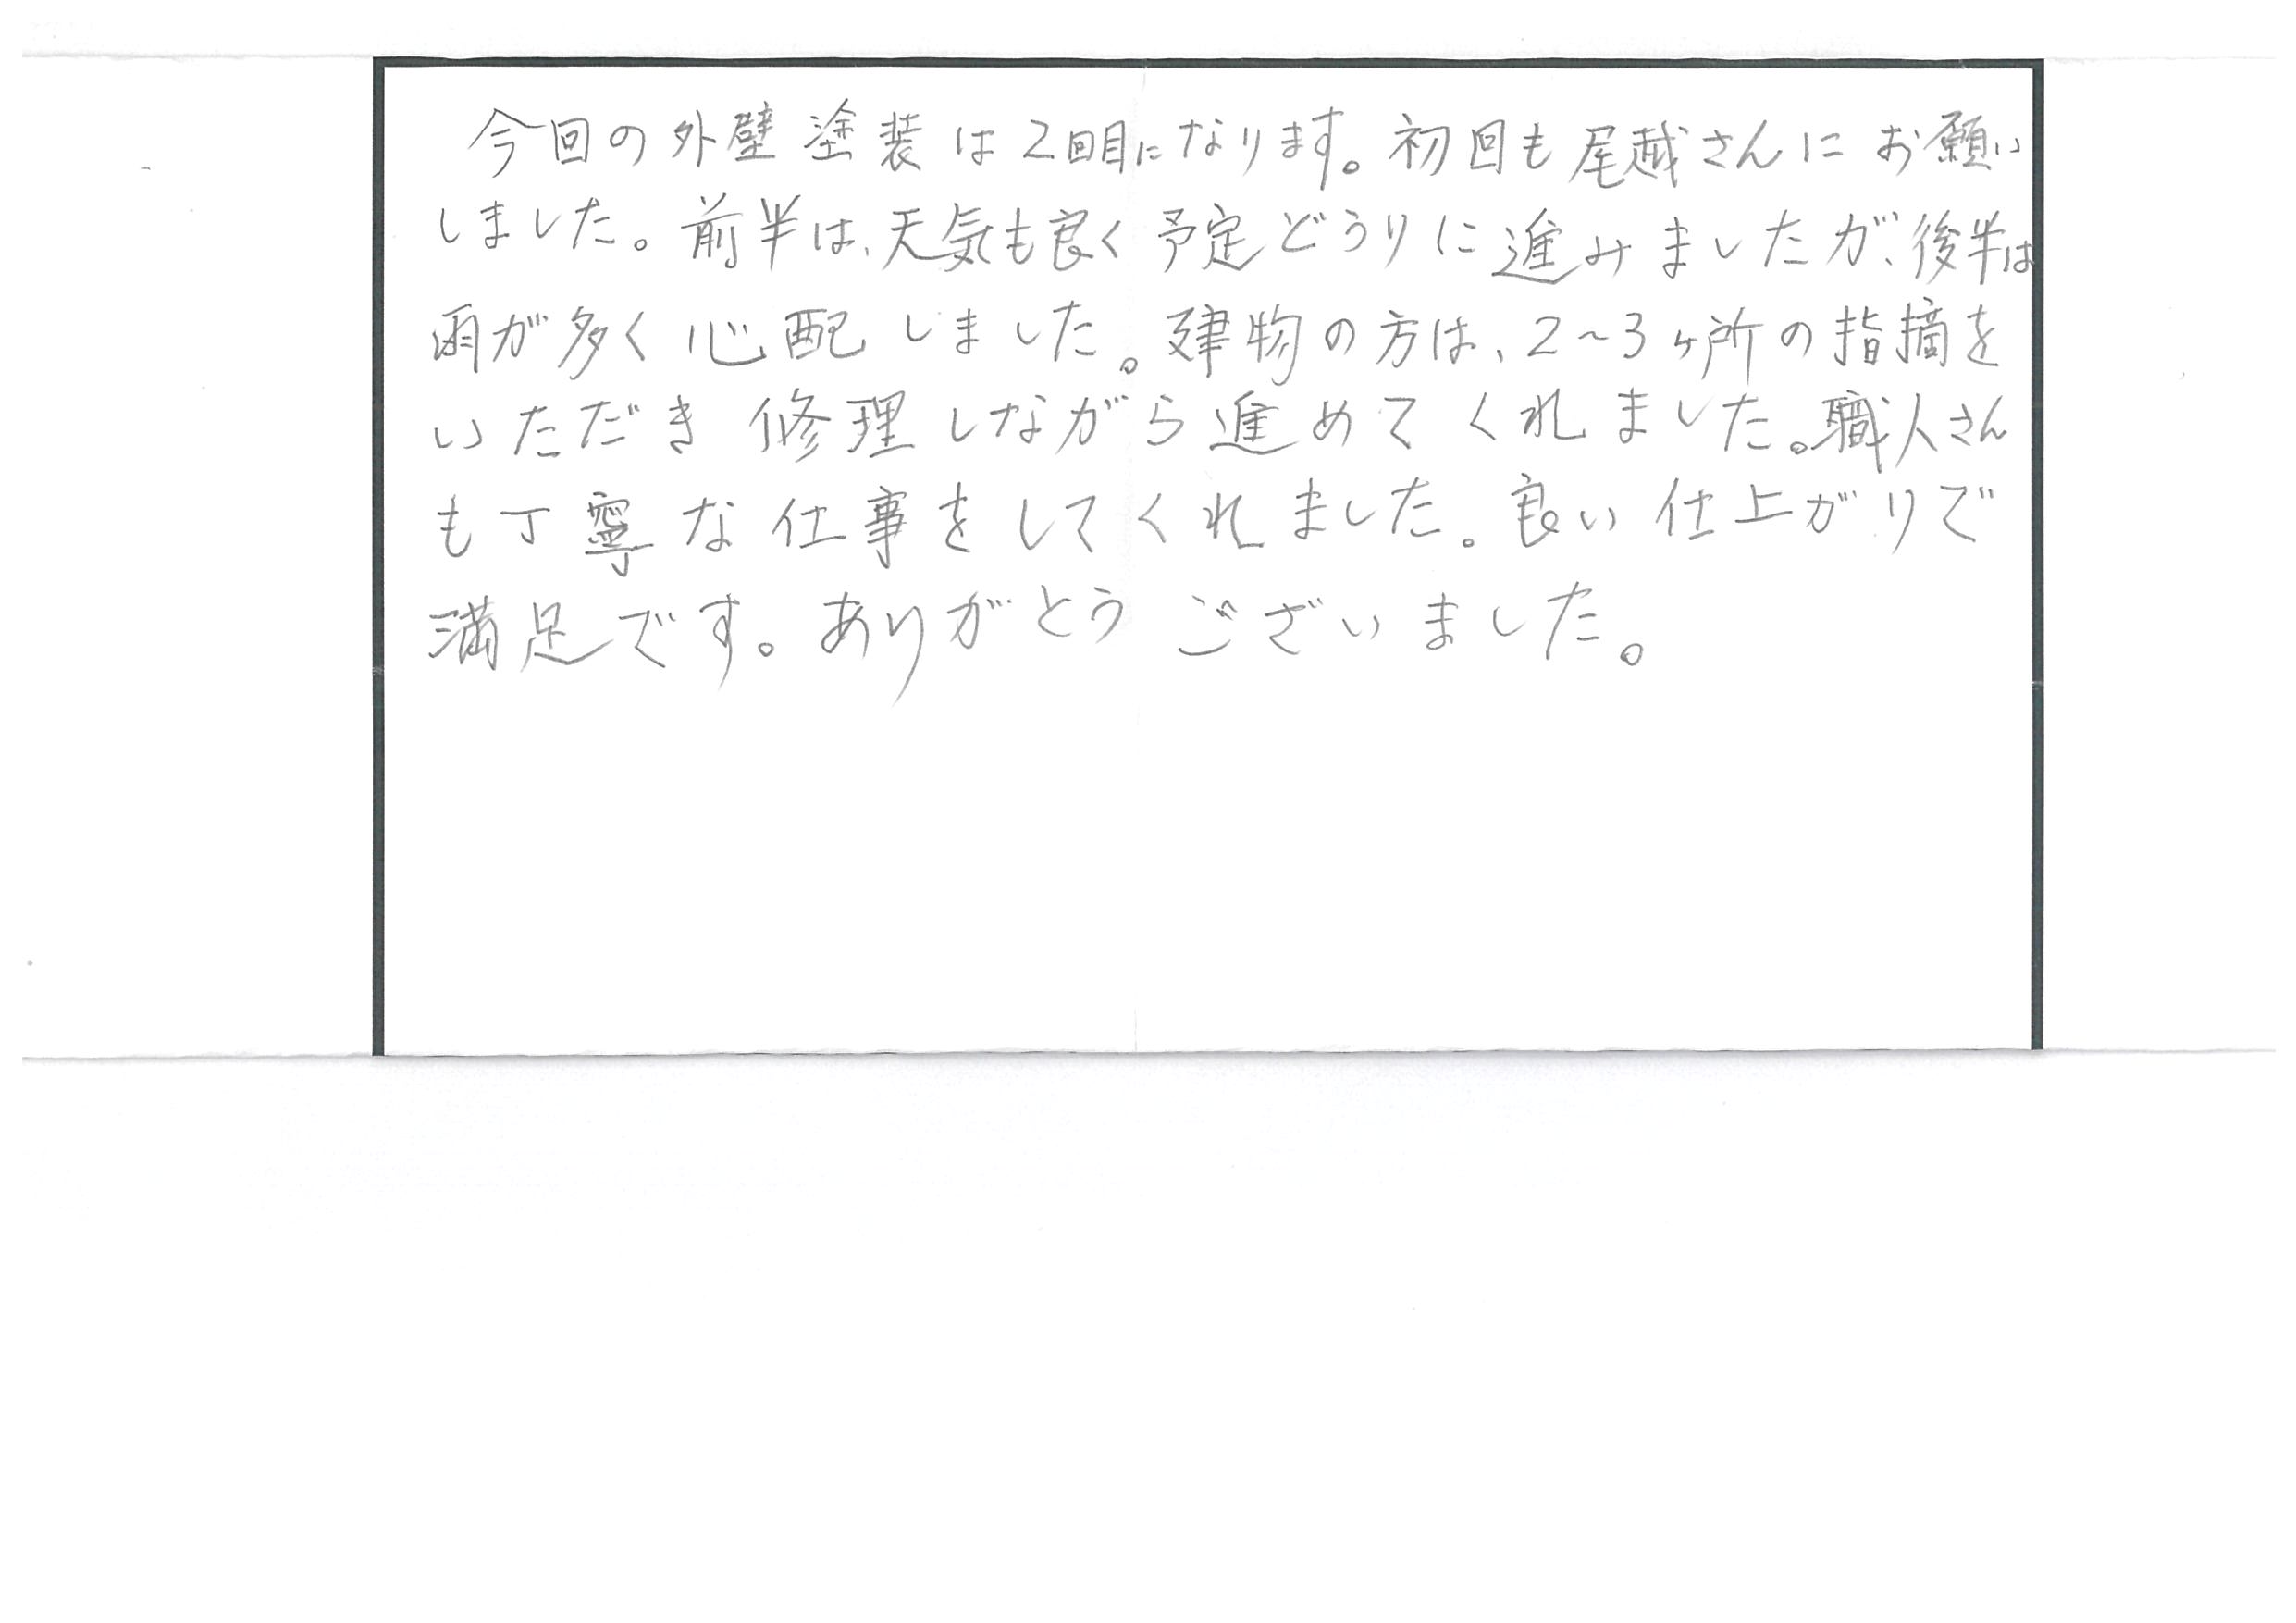 今回の外壁塗装は2回目になります。初回も尾越さんにお願い
しました。前半は、天気も良く予定どうりに進みましたが、後半は
雨が多く心配しました。建物の方は、2~3ヶ所の指摘を
いただき修理しながら進めてくれました。職人さん
も丁寧な仕事をしてくれました。良い仕上がりで
満足です。ありがとうございました。